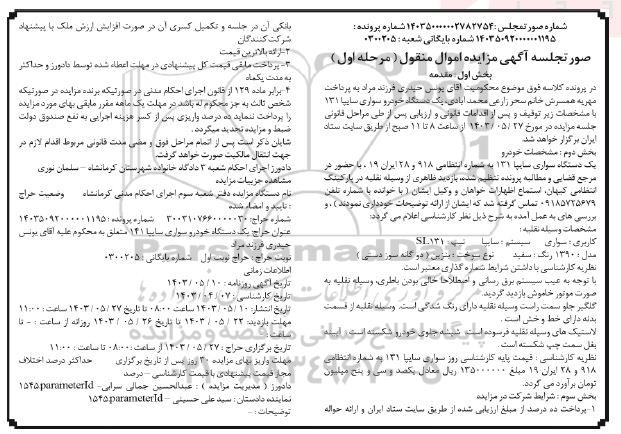 شماره صورتمجلس: ۱۴۰۳۵۰۰۰۰۰۰۲۷۸۲۷۵۴ شماره پرونده:
۱۴۰۳۵۰۹۲۰۰۰۰۰۰۱۱۹۵ شماره بایگانی شعبه: ۰۳۰۰۲۰۵
صورتجلسه آگهی مزایده اموال منقول (مرحله اول)
بخش اول - مقدمه
در پرونده کلاسه فوق موضوع محکومیت آقای یونس حیدری فرزند مراد به پرداخت
مهریه همسرش خانم سحر زارعی محمد آبادی، یک دستگاه خودرو سواری سایپا ۱۳۱
با مشخصات زیر توقیف و پس از اقدامات قانونی و ارزیابی پس از طی مراحل قانونی
جلسه مزایده در مورخ ۲۷ / ۰۵ / ۱۴۰۳ از ساعت ۸ تا ۱۱ صبح از طریق سایت ستاد
ایران برگزار خواهد شد.
بخش دوم: مشخصات خودرو
یک دستگاه سواری سایپا ۱۳۱ به شماره انتظامی ۹۱۸ و ۲۸ ایران ۱۹ ، با حضور در
مرجع قضایی و مطالعه پرونده تنظیم شده، بازدید ظاهری از وسیله نقلیه در پارکینگ
انتظامی کیهان، استماع اظهارات خواهان و وکیل ایشان (با خوانده با شماره تلفن
۰۹۱۸۵۷۲۵۶۷۹ تماس گرفته شد که ایشان از ارائه توضیحات خودداری نمودند)، و
بررسی های به عمل آمده به شرح ذیل نظر کارشناسی اعلام می گردد:
مشخصات وسیله نقلیه:
کاربری: سواری سیستم: سایپا تیپ: SL۱۳۱
مدل: ۱۳۹۰ رنگ: سفید نوع سوخت: بنزین (دو گانه سوز دستی)
نظریه کارشناسی با داشتن شرایط شماره گذاری معتبر است.
با توجه به عیب سیستم برق رسانی و اصطلاحا خالی بودن باطری، وسیله نقلیه به
صورت موتور خاموش بازدید گردید.
گلگیر جلو سمت راست وسیله نقلیه دارای رنگ شدگی است. وسیله نقلیه از قسمت
بدنه دارای خط و خش است.
لاستیک های وسیله نقلیه فرسوده است. شیشه جلوی خودرو شکسته است. آیینه
بغل سمت چپ شکسته است.
نظریه کارشناسی: قیمت پایه کارشناسی روز سواری سایپا ۱۳۱ به شماره انتظامی
۹۱۸ و ۲۸ ایران ۱۹ مبلغ ۱۳۵۰۰۰۰۰۰۰ ریال معادل یکصد و سی و پنج میلیون
تومان برآورد می گردد.
بخش سوم: شرایط شرکت در مزایده
۱-پرداخت ده درصد از مبلغ ارزیابی شده از طریق سایت ستاد ایران و ارائه حواله
بانکی آن در جلسه و تکمیل کسری آن در صورت افزایش ارزش ملک با پیشنهاد
شرکت کنندگان
۲-ارائه بالاترین قیمت
۳-پرداخت مابقی قیمت کل پیشنهادی در مهلت اعطاء شده توسط دادورز و حداکثر
به مدت یکماه
۴-برابر ماده ۱۲۹ از قانون اجرای احکام مدنی در صورتیکه برنده مزایده در صورتیکه
شخص ثالث به جز محکوم له باشد در مهلت یک ماهه مقرر مابقی بهای مورد مزایده
را پرداخت ننماید ده درصد واریزی پس از کسر هزینه اجرایی به نفع صندوق دولت
ضبط و مزایده تجدید میگردد.
شایان ذکر است پس از اتمام مراحل فوق و مضی مدت قانونی مربوط اقدام لازم در
جهت انتقال مالکیت صورت خواهد گرفت.
دادورز اجرای احکام شعبه ۳ دادگاه خانواده شهرستان کرمانشاه – سلمان نوری
مشاهده جزییات مزایده
نام دستگاه مزایده دفتر شعبه سوم اجرای احکام مدنی کرمانشاه وضعیت حراج
: تایید و امضاء شده
شماره حراج: ۳۰۰۳۱۰۷۶۶۰۰۰۰۰۳۰ شماره پرونده: ۱۴۰۳۵۰۹۲۰۰۰۰۰۰۱۱۹۵
عنوان حراج: یک دستگاه خودرو سواری سایپا ۱۴۱ متعلق به محکوم علیه آقای یونس
حیدری فرزند مراد
نوبت حراج: حراج نوبت اول شماره بایگانی: ۰۳۰۰۲۰۵
اطلاعات زمانی
تاریخ آگهی روزنامه: ۱۰ / ۰۵ / ۱۴۰۳
تاریخ کارشناسی: ۰۷ / ۰۴ / ۱۴۰۳
تاریخ انتشار: ۱۰ / ۰۵ / ۱۴۰۳ ساعت: ۰۸:۰۰ تا تاریخ ۲۷ / ۰۵ / ۱۴۰۳ ساعت: ۱۱:۰۰
مهلت بازدید: ۲۲ / ۰۵ / ۱۴۰۳ تا تاریخ ۲۶ / ۰۵ / ۱۴۰۳ روزانه از ساعت: - تا
ساعت: -
تاریخ برگزاری حراج: ۲۷ / ۰۵ / ۱۴۰۳ از ساعت: ۰۸:۰۰ تا ساعت: ۱۱:۰۰
مهلت واریز بهای مزایده ۳۰ روز پس از تاریخ برگزاری حداکثر درصد اختلاف
مجاز قیمت پیشنهادی با قیمت کارشناسی – درصد
دادورز (مدیریت مزایده): عبدالحسین جمالی سرابی- ۱۵۴۵parameterId
نماینده دادستان: سید علی حسینی – ۱۵۴۵parameterId
توضیحات: –